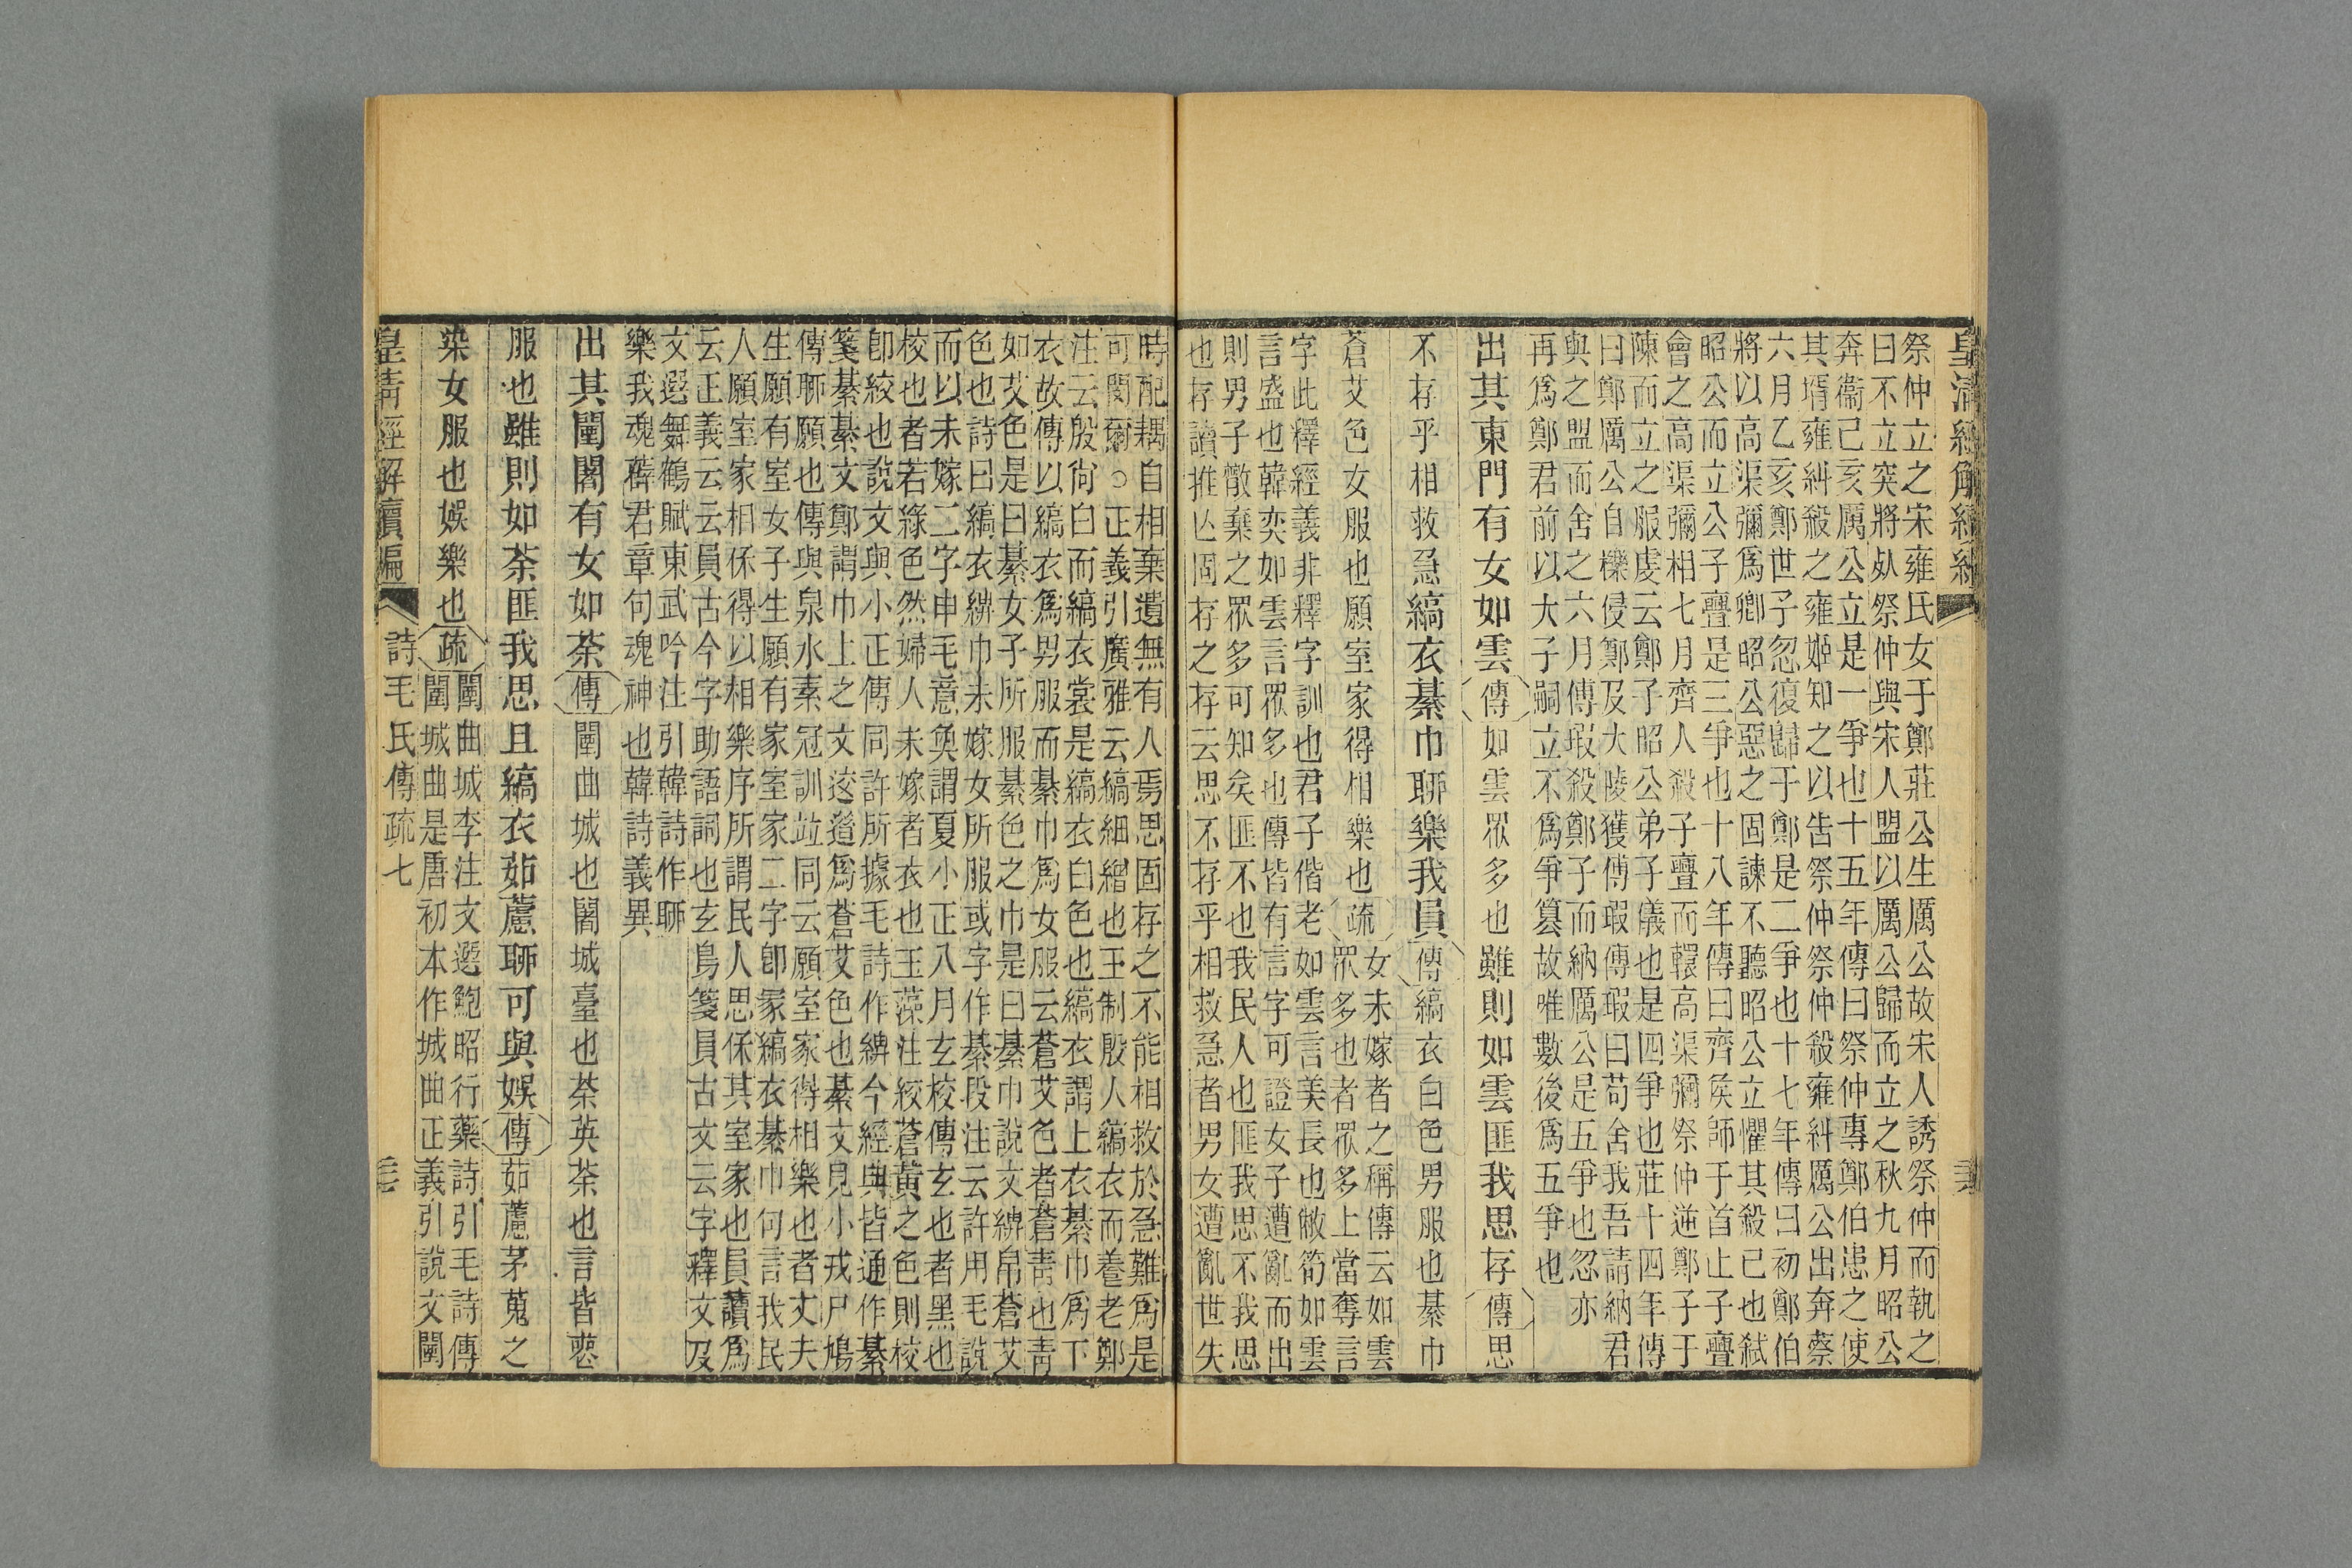 皇清經解續編
祭仲立之宋雍氏女于鄭莊公生厲公故宋人誘祭仲而執之
曰不立突將㱾祭仲與宋人盟以厲公歸而立之秋九月昭公
奔衞己亥厲公立是一爭也十五年傳曰祭仲專鄭伯患之使
其壻雍糾殺之雍姬知之以告祭仲祭仲殺雍糾厲公出奔蔡
六月乙亥鄭世子忽復歸于鄭是二爭也十七年傳曰初鄭伯
將以高渠彌爲卿昭公惡之固諫不聽昭公立懼其殺已也弑
昭公而立公子亹是三爭也十八年傳曰齊矦師于首止子亹
會之高渠彌相七月齊人殺子亹而轘高渠彌祭仲逆鄭子于
陳而立之服虔云鄭子昭公弟子儀也是四爭也莊十四年傳
曰鄭厲公自櫟侵鄭及大陵獲傅瑕傅瑕曰苟舍我吾請納君
與之盟而舍之六月傅瑕殺鄭子而納厲公是五爭也忽亦
再爲鄭君前以大子嗣立不爲爭篡故唯數後爲五爭也
出其東門有女如雲傳如雲眾多也雖則如雲匪我思存傳思
不存乎相救急縞衣綦巾聊樂我員傳縞衣白色男服也綦巾
蒼艾色女服也願室家得相樂也疏女未嫁者之稱傳云如雲
眾多也者眾多上當奪言
字此釋經義非釋字訓也君子偕老如雲言美長也敝笱如雲
言盛也韓奕如雲言眾多也傳皆有言字可證女子遭亂而出
則男子憿棄之眾多可知矣匪不也我民人也匪我思不我思
也存讀推亾固存之存云思不存乎相救急者男女遭亂世失
時配耦自相棄遺無有人焉思固存之不能相救於急難爲是
可閔爾○正義引廣雅云縞細繒也王制殷人縞衣而養老鄭
注云殷尙白而縞衣裳是縞衣白色也縞衣謂上衣綦巾爲下
衣故傳以縞衣爲男服而綦巾爲女服云蒼艾色者蒼靑也靑
如艾色是曰綦女子所服綦色之巾是曰綦巾說文綥帛蒼艾
色也詩曰縞衣綥巾未嫁女所服或字作綦段注云許用毛說
而以未嫁二字申毛意奐謂夏小正八月玄校傳玄也者黑也
校也者若綠色然婦人未嫁者衣也玉藻注絞蒼黃之色則校
卽絞也說文與小正傳同許所據毛詩作綥今經典皆通作綦
箋綦綦文鄭謂巾上之文迻造爲蒼艾色也綦文見小戎尸鳩
傳聊願也傳與泉水素冠訓竝同云願室家得相樂也者丈夫
生願有室女子生願有家室家二字卽家縞衣綦巾何言我民
人願室家相保得以相樂序所謂民人思保其室家也員讀爲
云正義云云員古今字助語詞也玄鳥箋員古文云字釋文及
文選舞鶴賦東武吟注引韓詩作聊
樂我魂薛君章句魂神也韓詩義異
出其闉闍有女如荼傳闉曲城也闍城臺也荼英荼也言皆喪
服也雖則如荼匪我思且縞衣茹藘聊可與娛傳茹藘茅蒐之
染女服也娛樂也疏闉曲城李注文選鮑昭行藥詩引毛詩傳
闉城曲是唐初本作城曲正義引說文闉
皇清經解續編 詩毛氏傳疏七